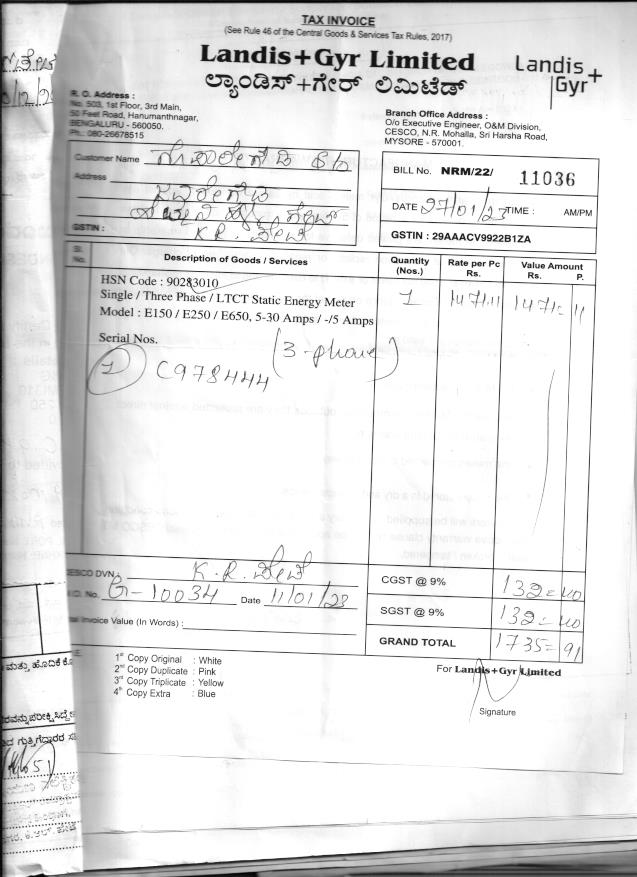 TAX INVOICE
(See Rule 46 of the Central Goods & Services Tax Rules, 2017)
Landis+Gyr Limited
ಲ್ಯಾಂಡಿಸ್+ಗೇರ್ ಲಿಮಿಟೆಡ್
Landis+
Gyr
R. O. Address :
No. 503, 1st Floor, 3rd Main,
50 Feet Road, Hanumanthnagar,
BENGALURU - 560050.
Ph.: 080-26678515
Branch Office Address :
O/o Executive Engineer, O&M Division,
CESCO, N.R. Mohalla, Sri Harsha Road,
MYSORE - 570001.
Customer Name
Address
GSTIN : K.R. ಪೇಟೆ
BILL No. NRM/22/ 11036
DATE 27/01/23 TIME : AM/PM
GSTIN : 29AAACV9922B1ZA
Sl. No. Description of Goods / Services Quantity (Nos.) Rate per Pc Rs. Value Amount Rs. P.
HSN Code : 90283010
Single / Three Phase / LTCT Static Energy Meter 1 1471.11 1471= 11
Model : E150 / E250 / E650, 5-30 Amps / -/5 Amps
Serial Nos. (3-phase)
1) C978444
CESCO DVN.: K.R. ಪೇಟೆ
No. G-10034 Date 11/01/23
Invoice Value (In Words) :
CGST @ 9% 132= 40
SGST @ 9% 132= 40
GRAND TOTAL 1735= 91
1st Copy Original : White
2nd Copy Duplicate : Pink
3rd Copy Triplicate : Yellow
4th Copy Extra : Blue
For Landis+Gyr Limited
Signature